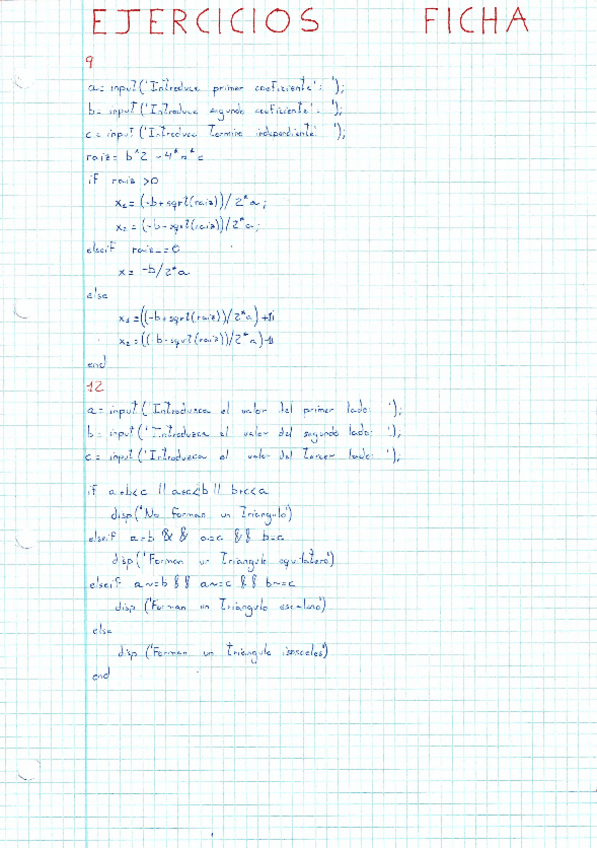 EJERCICIOS FICHA
9
a= input('Introduce primer coeficiente: ');
b= input('Introduce segundo coeficiente: ');
c= input('Introduce Termino independiente ');
raiz= b^2 -4*a*c
if raiz >0
x1= (-b+sqrt(raiz))/2*a;
x2= (-b-sqrt(raiz))/2*a;
elseif raiz==0
x= -b/2*a
else
x1=((-b+sqrt(raiz))/2*a)+1i
x2=((-b-sqrt(raiz))/2*a)-1i
end
12
a= input('Introduzca el valor del primer lado: ');
b= input('Introduzca el valor del segundo lado: ');
c= input('Introduzca el valor del tercer lado: ');
if a+b<c || a+c<b || b+c<a
disp('No forman un Triangulo')
elseif a=b && a=c && b=c
disp('Forman un Triangulo equilatero')
elseif a~=b && a~=c && b~=c
disp ('Forman un Triangulo escaleno')
else
disp ('Forman un triangulo isosceles')
end